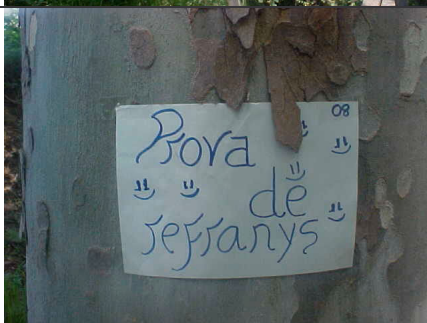 08
Prova
de
refranys